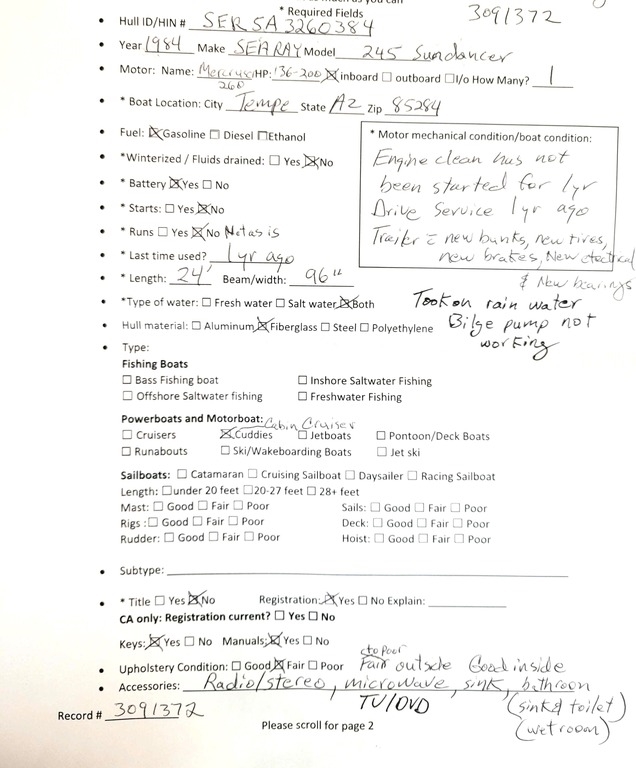 * Required Fields
3091372
• Hull ID/HIN # SERSA3260384
• Year 1984 Make SEARAY Model 245 Sundancer
• Motor: Name: Mercruis HP: 136-200 ☒inboard ☐ outboard ☐I/o How Many? 1
260
• * Boat Location: City Tempe State AZ Zip 85284
• Fuel: ☒Gasoline ☐ Diesel ☐Ethanol
• *Winterized / Fluids drained: ☐ Yes ☒No
• * Battery ☒Yes ☐ No
• * Starts: ☐ Yes ☒No
• * Runs ☐ Yes ☒No Not as is
• * Last time used? 1yr ago
• * Length: 24' Beam/width: 96"
* Motor mechanical condition/boat condition:
Engine clean has not
been started for 1yr
Drive Service 1yr ago
Trailer = new bunks, new tires,
new brakes, New electrical
& New bearings
• *Type of water: ☐ Fresh water ☐ Salt water ☒Both
Took on rain water
Bilge pump not
working
• Hull material: ☐ Aluminum ☒Fiberglass ☐ Steel ☐ Polyethylene
• Type:
Fishing Boats
☐ Bass Fishing boat ☐ Inshore Saltwater Fishing
☐ Offshore Saltwater fishing ☐ Freshwater Fishing
Powerboats and Motorboat: Cabin Cruiser
☐ Cruisers ☒Cuddies ☐ Jetboats ☐ Pontoon/Deck Boats
☐ Runabouts ☐ Ski/Wakeboarding Boats ☐ Jet ski
Sailboats: ☐ Catamaran ☐ Cruising Sailboat ☐ Daysailer ☐ Racing Sailboat
Length: ☐under 20 feet ☐20-27 feet ☐ 28+ feet
Mast: ☐ Good ☐ Fair ☐ Poor Sails: ☐ Good ☐ Fair ☐ Poor
Rigs :☐ Good ☐ Fair ☐ Poor Deck: ☐ Good ☐ Fair ☐ Poor
Rudder: ☐ Good ☐ Fair ☐ Poor Hoist: ☐ Good ☐ Fair ☐ Poor
• Subtype:
• * Title ☐ Yes ☒No Registration: ☒Yes ☐ No Explain:
CA only: Registration current? ☐ Yes ☐ No
Keys: ☒Yes ☐ No Manuals: ☒Yes ☐ No
to Poor
• Upholstery Condition: ☐ Good ☒Fair ☐ Poor Fair outside Good inside
• Accessories: Radio/stereo, microwave, sink, bathroom
TV/DVD (sink & toilet)
(wet room)
Record # 3091372
Please scroll for page 2